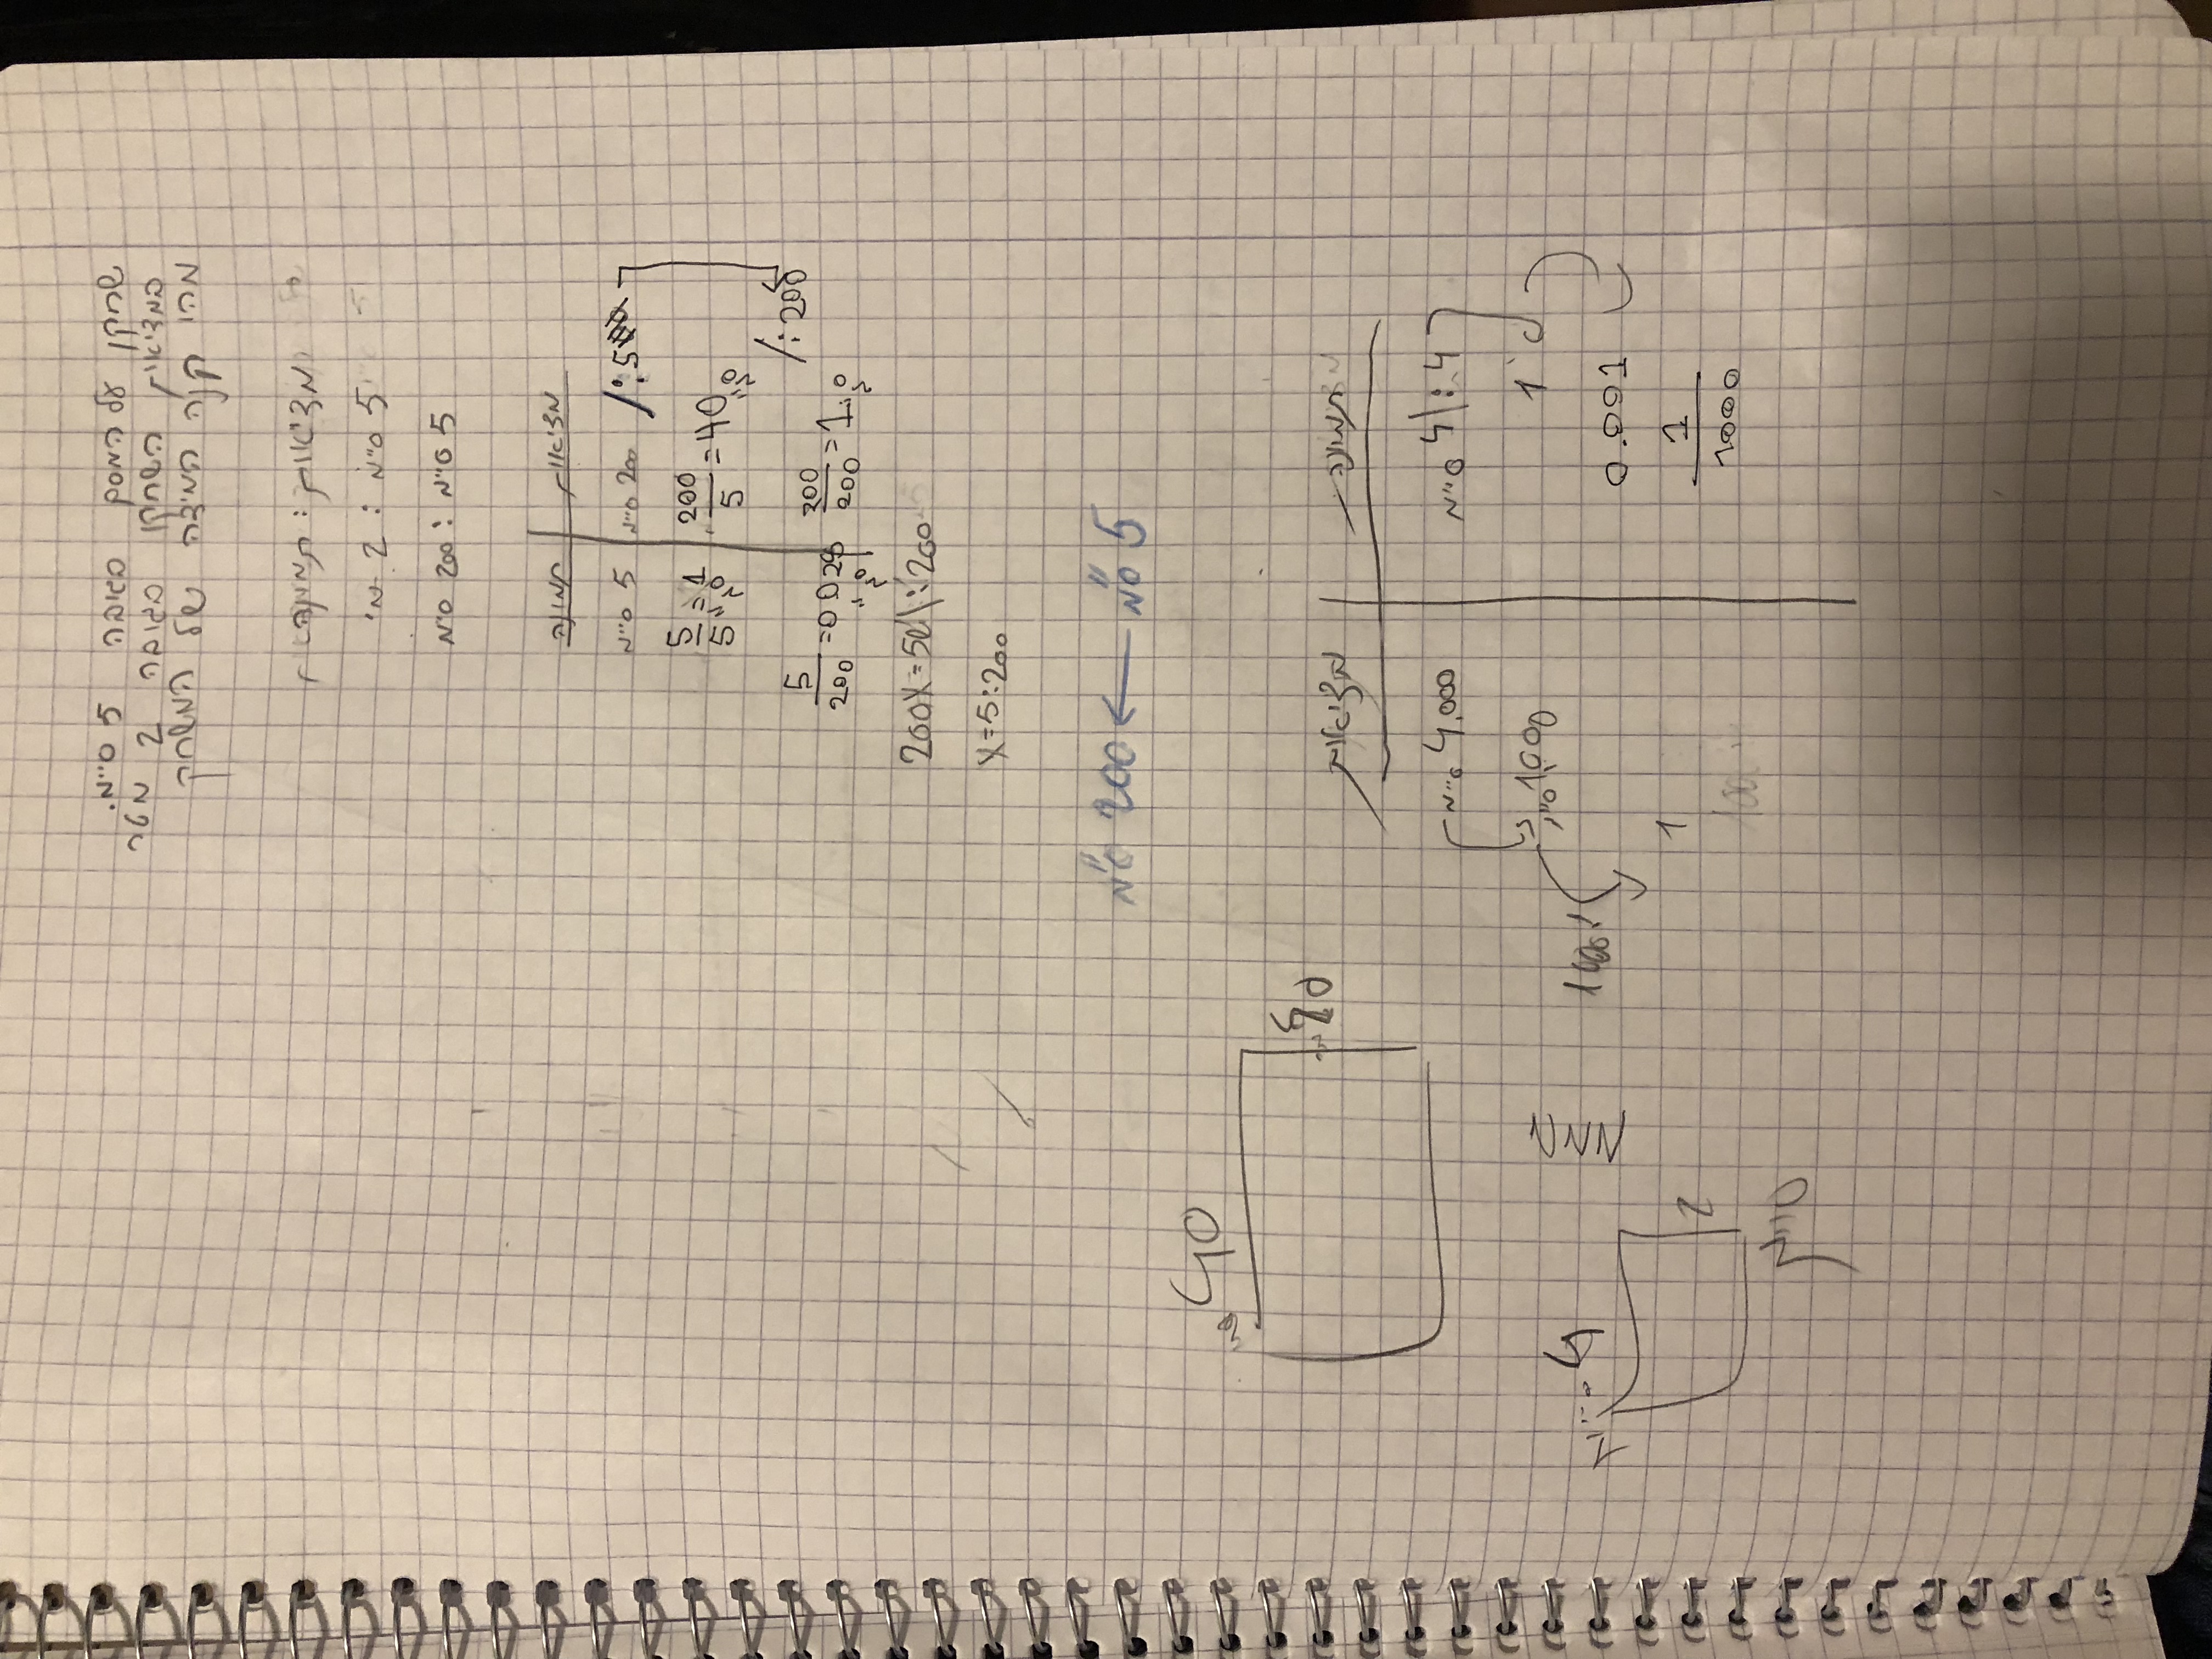 שחקן על המסך בגובה 5 ס״מ.
במציאות השחקן בגובה 2 מטר
מהו קנה המידה של המשחק
מציאות : תמונה
5 ס״מ : 2 מ׳
5 ס״מ : 200 ס״מ
תמונה מציאות
5 ס״מ 200 ס״מ /:5
5/5 = 1 ס״מ 200/5 = 40 ס״מ
/: 200
5/200 = 0.025 ס״מ 200/200 = 1 ס״מ
200X=5 \:200
X=5:200
5 ס״מ ← 200 ס״מ
40
מציאות תמונה
4.000 ס״מ 4 ס״מ \: 4
1,000 ס״מ 1
0.001
1 1/1000
4
2
ס״מ